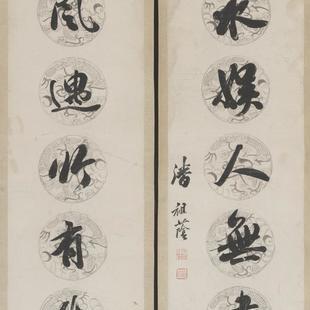 水娛人無
潘祖蔭
風遇竹有